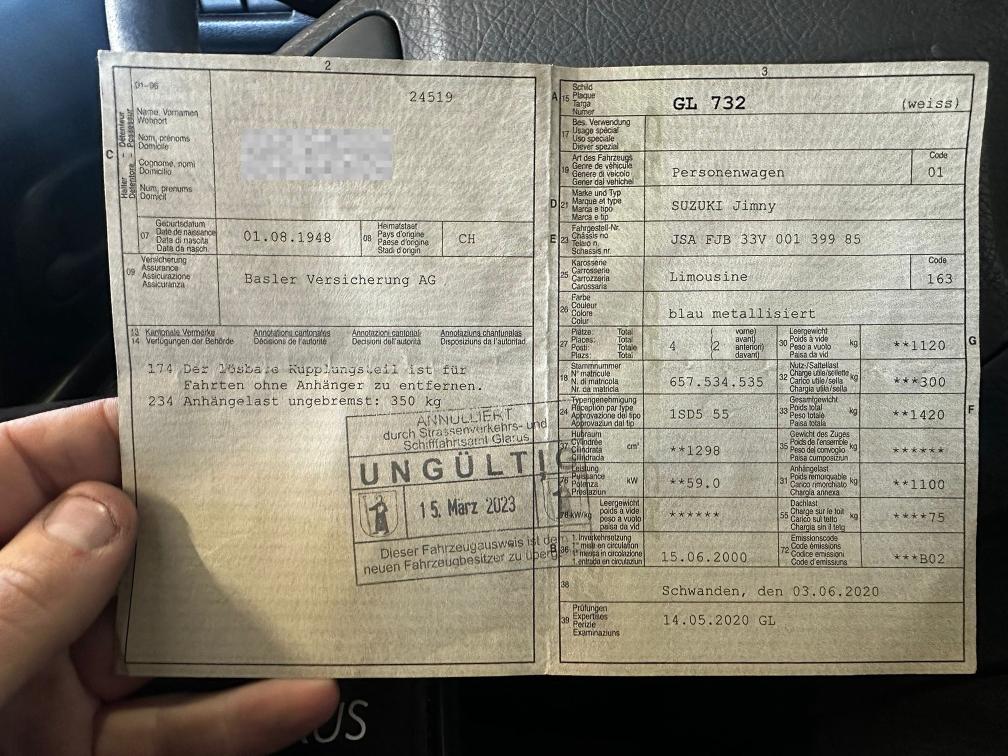 2
01-06
24519
C
Halter - Détenteur
Detentore - Possessur
Name, Vornamen
Wohnort
Nom, prénoms
Domicile
Cognome, nomi
Domicilio
Num, prenums
Domicil
07
Geburtsdatum
Date de naissance
Data di nascita
Data da nasch.
01.08.1948
08
Heimatstaat
Pays d'origine
Paese d'origine
Stadi d'origin
CH
09
Versicherung
Assurance
Assicurazione
Assicuranza
Basler Versicherung AG
13
14
Kantonale Vermerke
Verfügungen der Behörde
Annotations cantonales
Décisions de l'autorité
Annotazioni cantonali
Decisioni dell'autorità
Annotaziuns chantunalas
Disposiziuns da l'autoritad
174 Der lösbare Kupplungsteil ist für
Fahrten ohne Anhänger zu entfernen.
234 Anhängelast ungebremst: 350 kg
ANNULLIERT
durch Strassenverkehrs- und
Schifffahrtsamt Glarus
UNGÜLTIG
15. März 2023
Dieser Fahrzeugausweis ist dem
neuen Fahrzeugbesitzer zu
3
A
15
Schild
Plaque
Targa
Numer
GL 732
(weiss)
17
Bes. Verwendung
Usage spécial
Uso speciale
Diever spezial
19
Art des Fahrzeugs
Genre de véhicule
Genere di veicolo
Gener dal vehichel
Personenwagen
Code
01
D
21
Marke und Typ
Marque et type
Marca e tipo
Marca e tip
SUZUKI Jimny
E
23
Fahrgestell-Nr.
Châssis no
Telaio n.
Schassis nr.
JSA FJB 33V 001 399 85
25
Karosserie
Carrosserie
Carrozzeria
Carossaria
Limousine
Code
163
26
Farbe
Couleur
Colore
Colur
blau metallisiert
27
Plätze: Total
Places: Total
Posti: Totale
Plazs: Total
4
(2
vorne)
avant)
anteriori)
davant)
30
Leergewicht
Poids à vide
Peso a vuoto
Paisa da vid
kg
**1120
G
18
Stammnummer
N° matricule
N. di matricola
Nr. da matricla
657.534.535
32
Nutz-/Sattellast
Charge utile/sellette
Carico utile/sella
Chargia utila/sella
kg
***300
24
Typengenehmigung
Réception par type
Approvazione del tipo
Approvaziun dal tip
1SD5 55
33
Gesamtgewicht
Poids total
Peso totale
Paisa totala
kg
**1420
F
37
Hubraum
Cylindrée
Cilindrata
Cilindrada
cm³
**1298
35
Gewicht des Zuges
Poids de l'ensemble
Peso del convoglio
Paisa cumposiziun
kg
******
76
Leistung
Puissance
Potenza
Prestaziun
kW
**59.0
31
Anhängelast
Poids remorquable
Carico rimorchiato
Chargia annexa
kg
**1100
78
kW/kg
Leergewicht
poids à vide
peso a vuoto
paisa da vid
******
55
Dachlast
Charge sur le toit
Carico sul tetto
Chargia sin il tetg
kg
****75
B
36
1. Inverkehrsetzung
1re mise en circulation
1a messa in circolazione
1. entrada en circulaziun
15.06.2000
72
Emissionscode
Code émissions
Codice emissioni
Code d'emissiuns
***B02
38
Schwanden, den 03.06.2020
39
Prüfungen
Expertises
Perizie
Examinaziuns
14.05.2020 GL